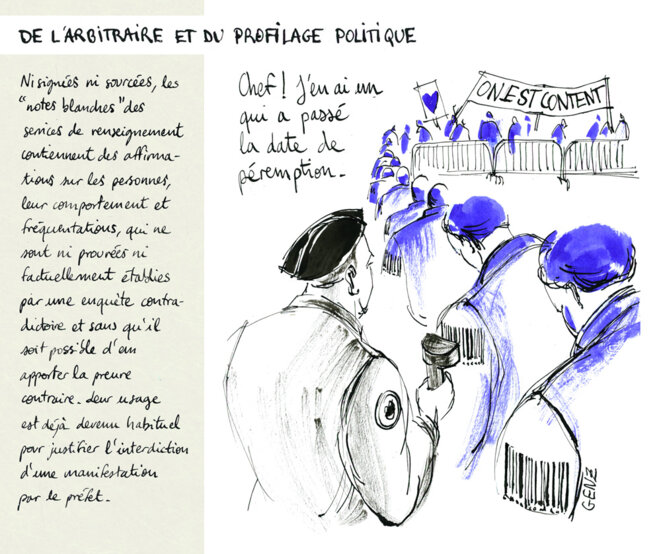 DE L'ARBITRAIRE ET DU PROFILAGE POLITIQUE
Ni signées ni sourcées, les
"notes blanches" des
services de renseignement
contiennent des affirma-
tions sur les personnes,
leur comportement et
fréquentations, qui ne
sont ni prouvées ni
factuellement établies
par une enquête contra-
dictoire et sans qu'il
soit possible d'en
apporter la preuve
contraire. Leur usage
est déjà devenu habituel
pour justifier l'interdiction
d'une manifestation
par le préfet.
Chef! J'en ai un
qui a passé
la date de
péremption.
ON EST CONTENT
GENE